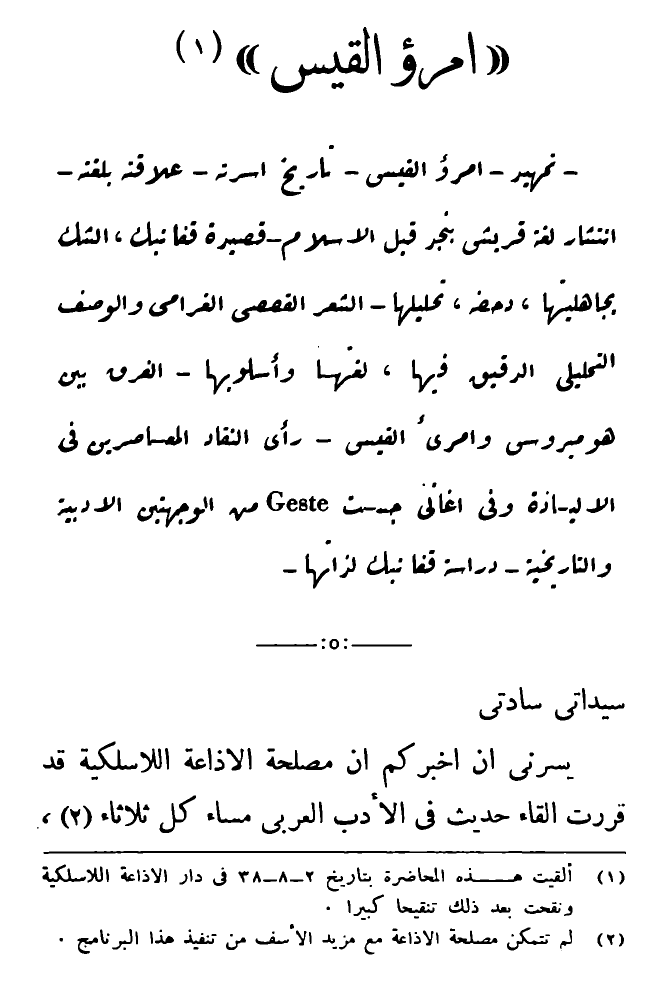 « امرؤ القيس » (١)
– تمهيد – امرؤ القيس – تاريخ اسرته – علاقته بلغته –
انتشار لغة قريش بنجد قبل الاسلام – قصيدة قفا نبك ، الشك
بجاهليتها ، دحضه ، تحليلها – الشعر القصصى الغرامى والوصف
التحليلى الدقيق فيها ، لغتهـا وأسلوبها – الفرق بين
هوميروس وامرىء القيس – رأى النقاد المعـاصرين فى
الاليـاذة وفى اغانى جـست Geste من الوجهتين الادبية
والتاريخية – دراسة قفا نبك لذاتها –
———:o:———
سيداتى سادتى
يسرنى ان اخبركم ان مصلحة الاذاعة اللاسلكية قد
قررت القاء حديث فى الأدب العربى مساء كل ثلاثاء (٢) ،
(١) ألقيت هـــــذه المحاضرة بتاريخ ٢–٨–٣٨ فى دار الاذاعة اللاسلكية
ونقحت بعد ذلك تنقيحا كبيرا .
(٢) لم تتمكن مصلحة الاذاعة مع مزيد الأسف من تنفيذ هذا البرنامج .